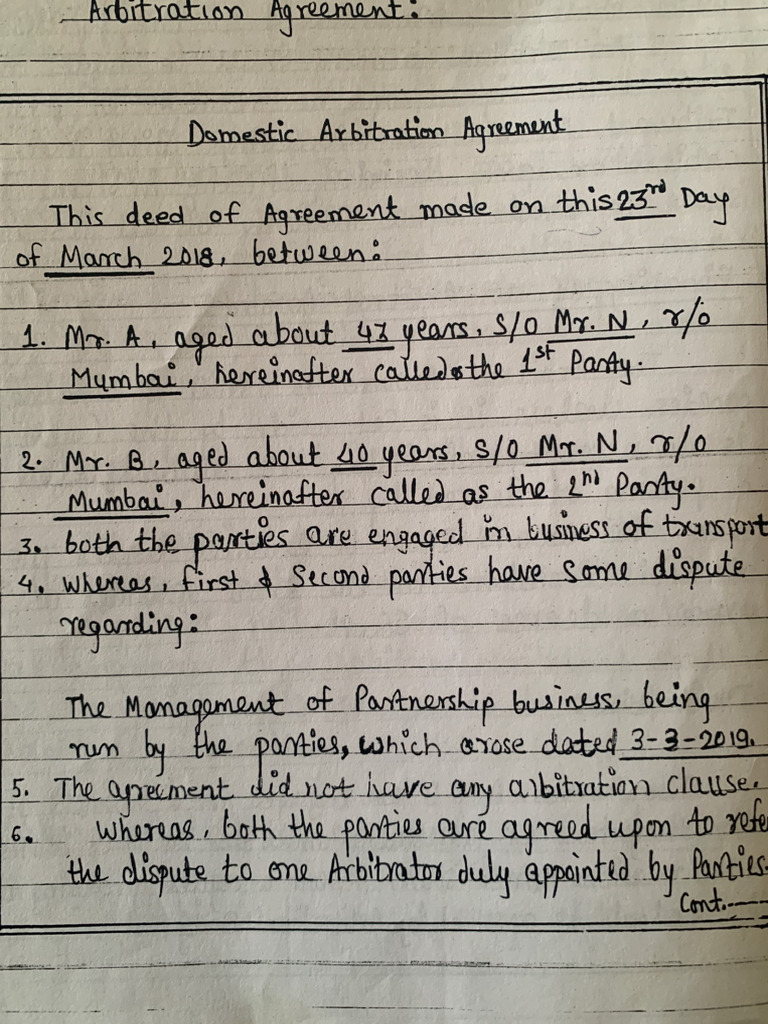 Arbitration Agreement:
Domestic Arbitration Agreement
This deed of Agreement made on this 23rd Day
of March 2018, between:
1. Mr. A, aged about 47 years, S/O Mr. N, r/o
Mumbai, hereinafter called as the 1st Party.
2. Mr. B, aged about 40 years, S/O Mr. N, r/o
Mumbai, hereinafter called as the 2nd Party.
3. both the parties are engaged in business of transport
4. whereas, first & Second parties have some dispute
regarding:
The Management of Partnership business, being
run by the parties, which arose dated 3-3-2019.
5. The agreement did not have any arbitration clause.
6. whereas, both the parties are agreed upon to refe
the dispute to one Arbitrator duly appointed by Parties.
Cont.----